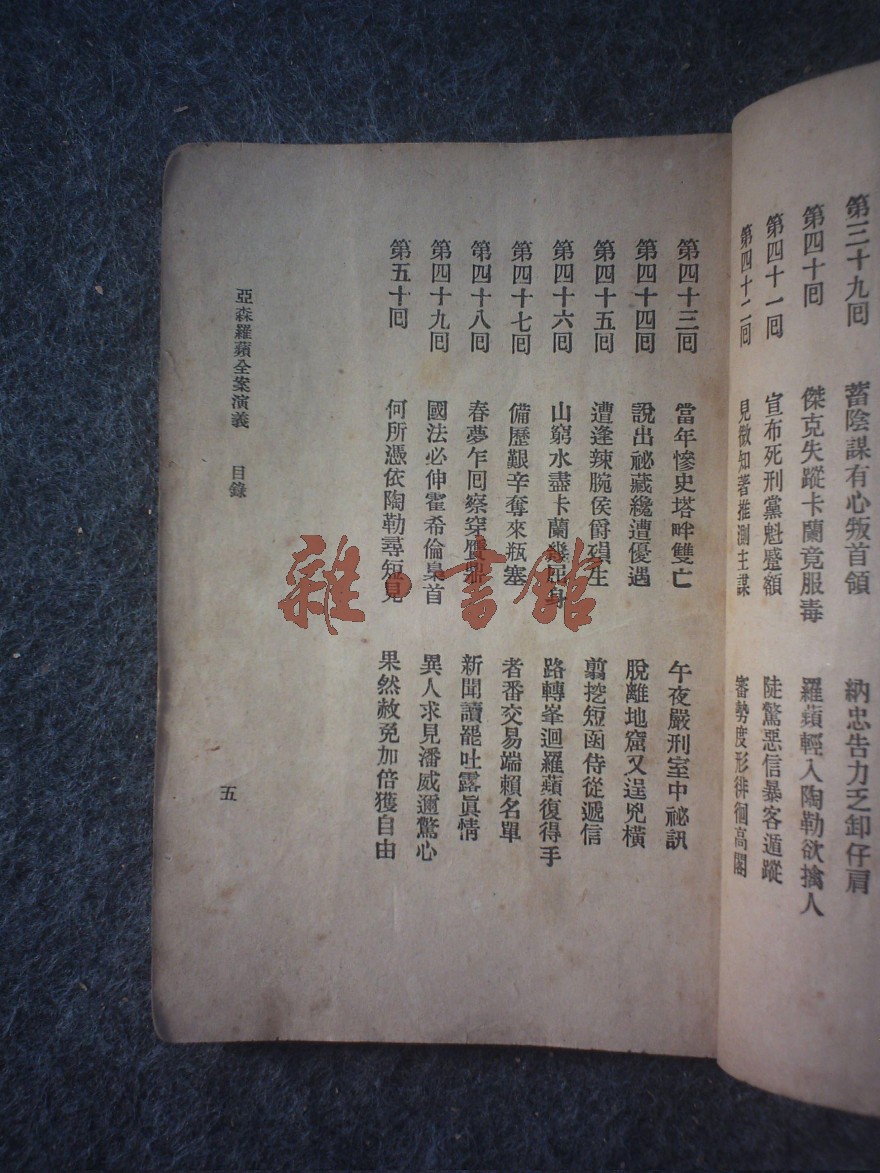 第三十九回 蓄陰謀有心叛首領 納忠告力乏卸仔肩
第四十回 傑克失蹤卡蘭竟服毒 羅蘋輕入陶勒欲擒人
第四十一回 宣布死刑黨魁蹙額 陡驚惡信暴客遁蹤
第四十二回 見微知著推測主謀 審勢度形徘徊高閣
第四十三回 當年慘史塔畔雙亡 午夜嚴刑室中祕訊
第四十四回 說出祕藏纔遭優遇 脫離地窟又逞兇橫
第四十五回 遭逢辣腕侯爵殞生 翦挖短函侍從遞信
第四十六回 山窮水盡卡蘭幾臨身 路轉峯迴羅蘋復得手
第四十七回 備歷艱辛奪來瓶塞 者番交易端賴名單
第四十八回 春夢乍回察穿贋鼎 新聞讀罷吐露眞情
第四十九回 國法必伸霍希倫梟首 異人求見潘威邇驚心
第五十回 何所憑依陶勒尋短見 果然赦免加倍獲自由
亞森羅蘋全案演義 目錄
五
雜·書館